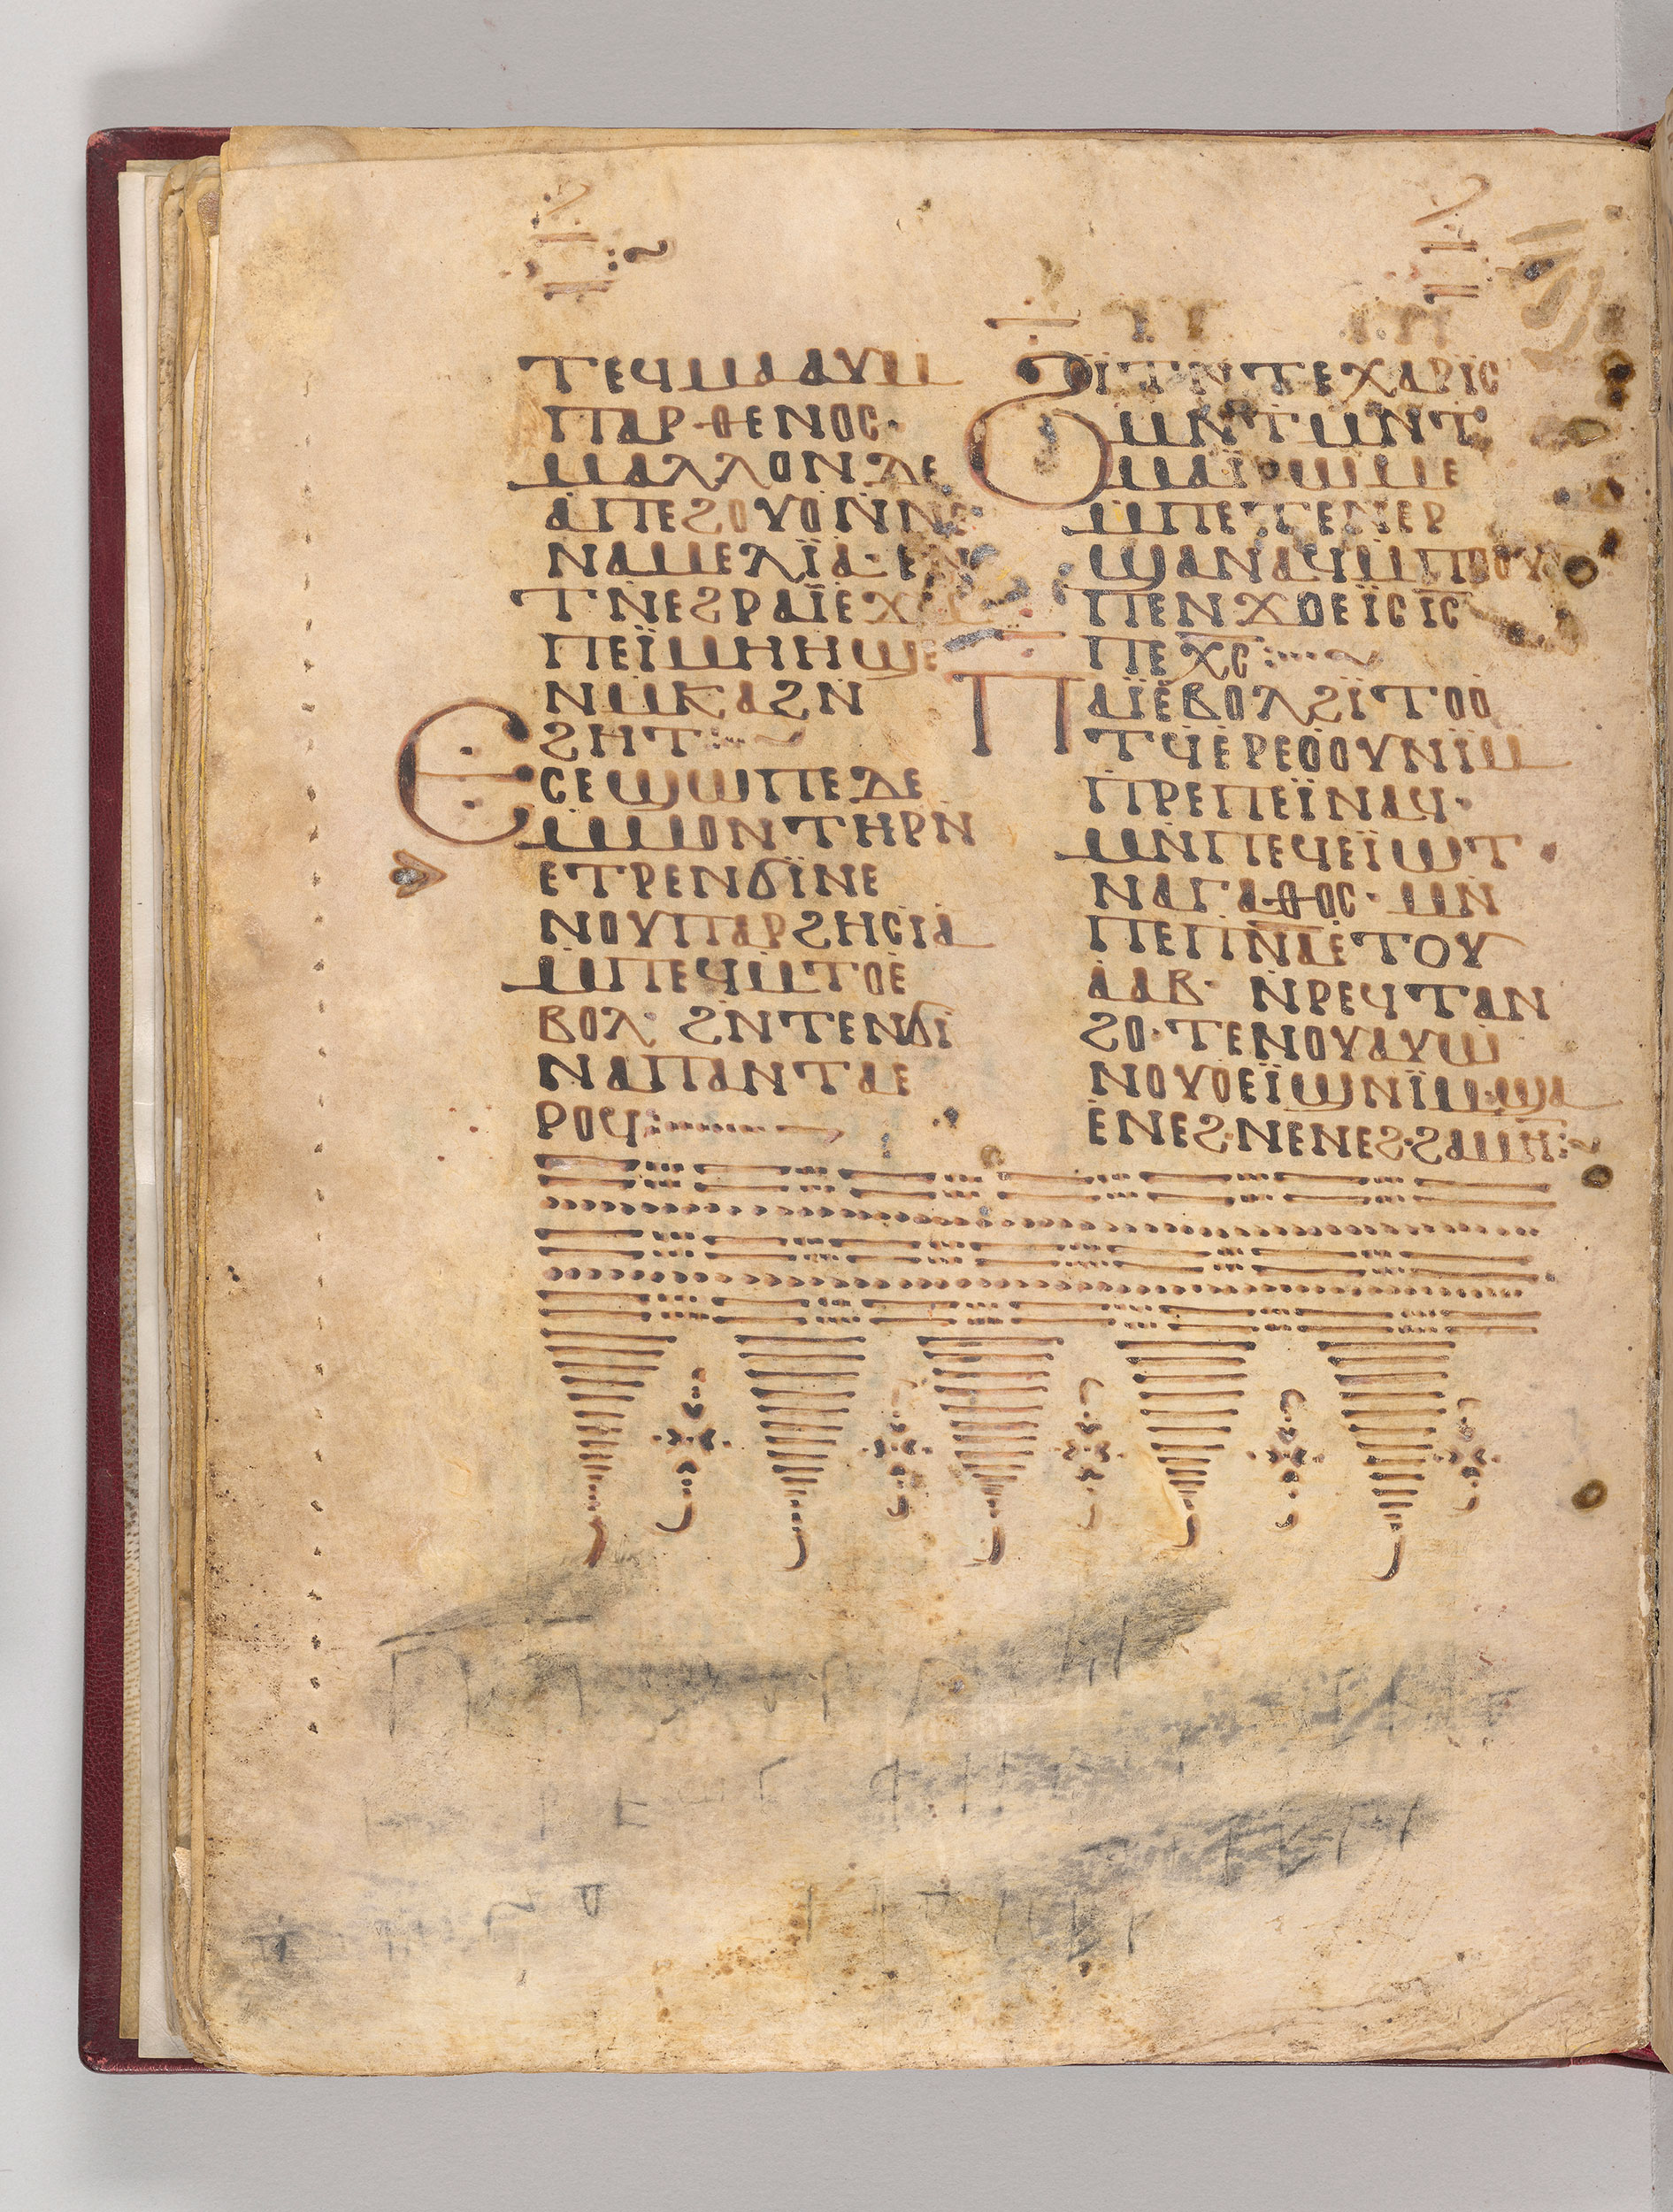 ⲧⲉϥⲙⲁⲁⲩⲙ
ⲡⲁⲣⲑⲉⲛⲟⲥ·
ⲙⲁⲗⲗⲟⲛ ⲇⲉ
ⲁⲡⲉϩⲟⲩⲟⲛ̇ⲛⲉ
ⲛⲁⲙⲉⲗⲓ̈ⲁ· ⲉⲛ
ⲧⲛ̇ⲉϩⲣⲁⲓ̈ⲉϫⲙ
ⲡⲉⲓ̈ⲙⲏⲏϣⲉ
ⲛⲙⲕⲁϩⲛ̇
ϩⲏⲧ
ⲉⲥⲉϣⲱⲡⲉⲇⲉ
ⲙ̇ⲙⲟⲛⲧⲏⲣⲛ̇
ⲉⲧⲣⲉⲛϭⲓ̈ⲛⲉ
ⲛⲟⲩⲡⲁⲣϩⲏⲥⲓⲁ
ⲙ̇ⲡⲉϥⲙ̇ⲧⲟⲉ
ⲃⲟⲗ· ϩⲛ̇ⲧⲉⲛϭⲓ
ⲛⲁⲡⲁⲛⲧⲁⲉ
ⲣⲟϥ
ϩⲓ̈ⲧⲛ̇ⲧⲉⲭⲁⲣⲓⲥ
ⲙⲛ̇ⲧⲙⲛ̇ⲧ
ⲙⲁⲓ̈ⲣⲱⲙⲉ
ⲙ̇ⲡⲉⲧⲉⲛⲉⲣ
ϣⲁⲛⲁϥⲙ̇ⲡⲥⲟⲩ
ⲡⲉⲛϫⲟⲉⲓⲥ ⲓ̅ⲥ̅
ⲡⲉⲭ̅ⲥ̅
ⲡⲁⲓ̈ⲉ̇ⲃⲟⲗϩⲓ̈ⲧⲟⲟ
ⲧϥⲉⲣⲉⲟⲟⲩⲛⲓ̈ⲙ
ⲡⲣⲉⲡⲉⲓ̈ⲛⲁϥ·
ⲙⲛ̇ⲡⲉϥⲉⲓ̈ⲱⲧ
ⲛⲁⲅⲁⲑⲟⲥ· ⲙⲛ̇
ⲡⲉⲡ̅ⲛ̅ⲁ̅ⲉⲧⲟⲩ
ⲁⲁⲃ· ⲛ̇ⲣⲉϥⲧⲁⲛ
ϩⲟ· ⲧⲉⲛⲟⲩⲁⲩⲱ
ⲛⲟⲩⲟⲉⲓ̈ϣⲛⲓ̈ⲙ·ϣⲁ
ⲉ̇ⲛⲉϩ·ⲛⲉⲛⲉϩ·ϩⲁⲙⲏⲛ